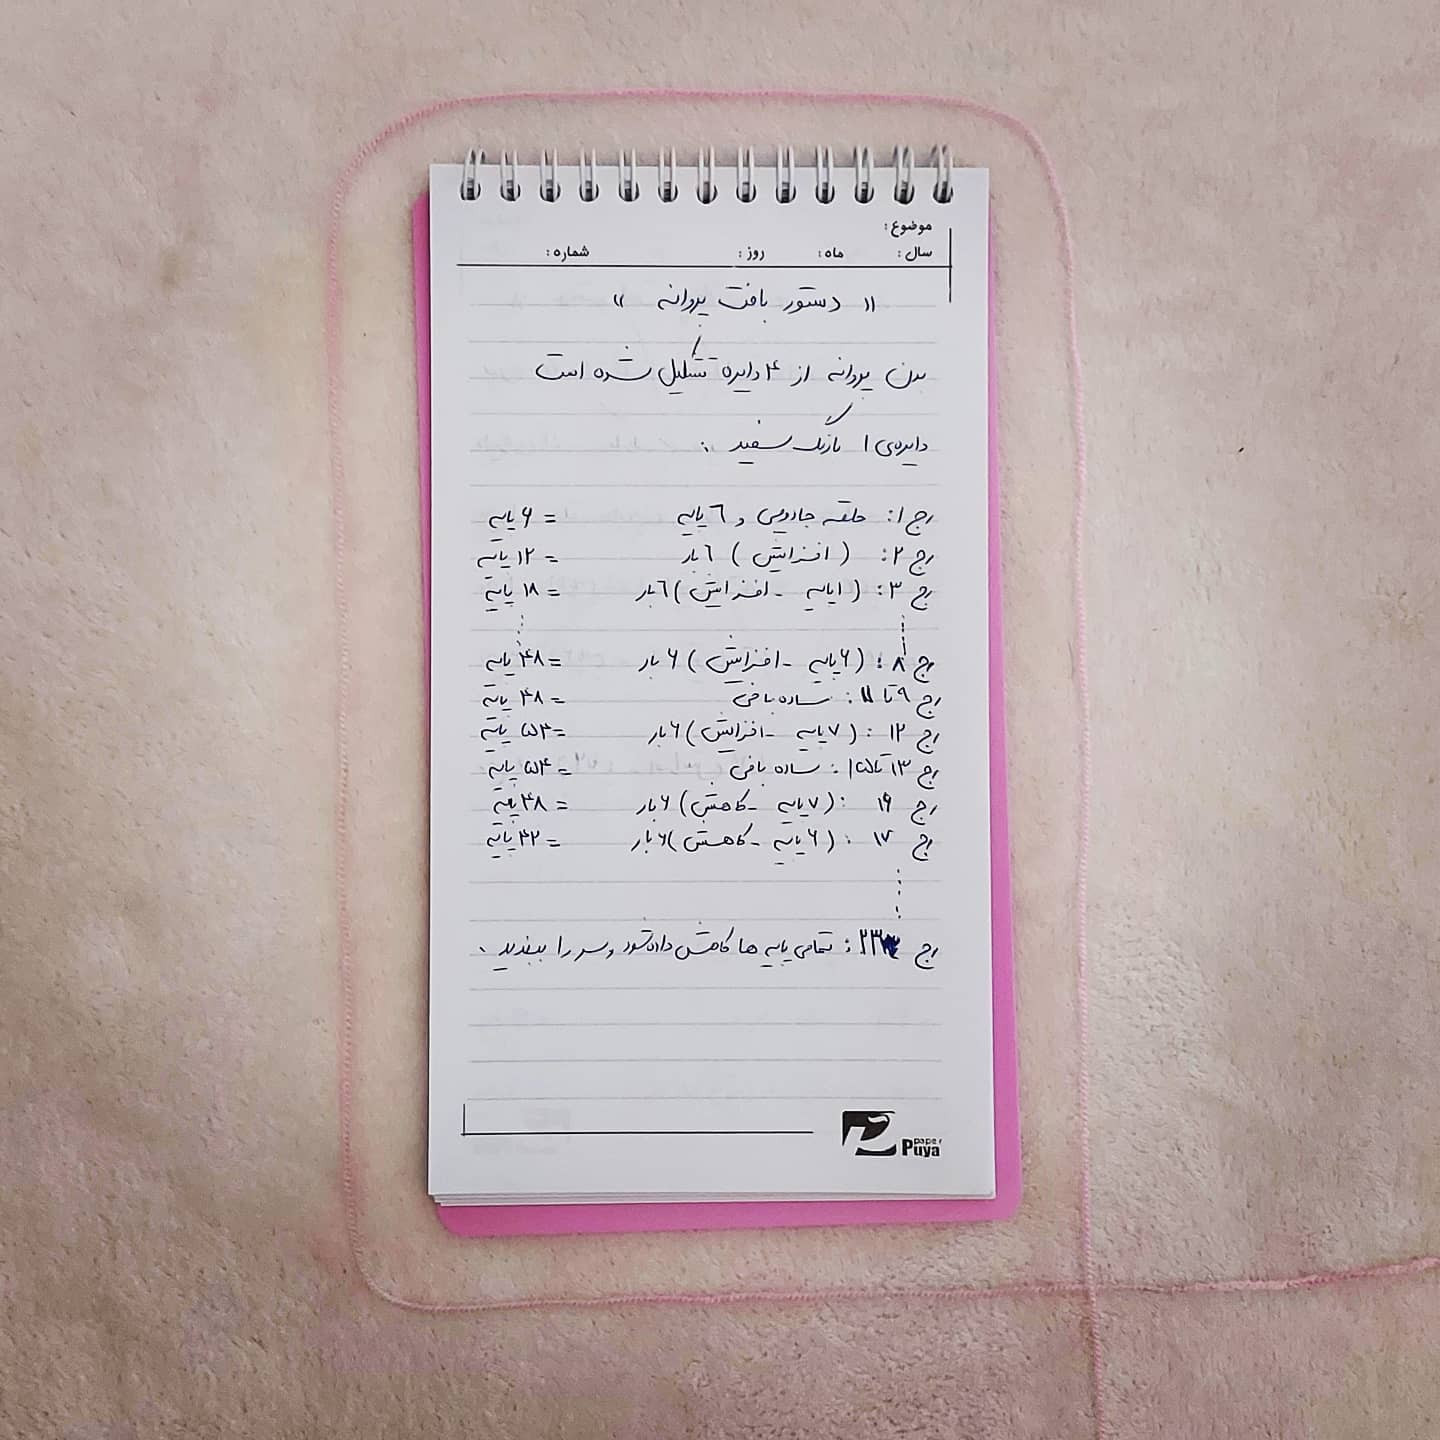 موضوع :
سال : ماه : روز : شماره :
" دستور بافت پروانه "
بدن پروانه از ۴ دایره تشکیل شده است
دایره‌ی ۱ بارنگ سفید :
رج ۱: حلقه جادویی و ٦ پایه = ۶ پایه
رج ۲: ( افزایش ) ٦ بار = ۱۲ پایه
رج ۳: ( ۱پایه - افزایش ) ٦ بار = ۱۸ پایه
رج ۸: ( ۶ پایه - افزایش ) ۶ بار = ۴۸ پایه
رج ۹ تا ۱۱: ساده بافی = ۴۸ پایه
رج ۱۲ : ( ۷ پایه - افزایش ) ۶ بار = ۵۴ پایه
رج ۱۳ تا ۱۵: ساده بافی = ۵۴ پایه
رج ۱۶ : ( ۷ پایه - کاهش ) ۶ بار = ۴۸ پایه
رج ۱۷ : ( ۶ پایه - کاهش ) ۶ بار = ۴۲ پایه
رج ۲۳: تمامی پایه ها کاهش داده شود و سر را ببندید .
paper
Puya